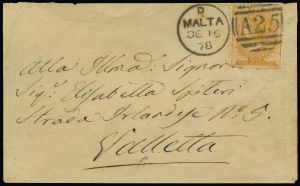 D
MALTA
DE 16
78
A25
Alla Illma Signora
Sig.a Elisabetta Spiteri
Strada Irlandese No 5.
Valletta